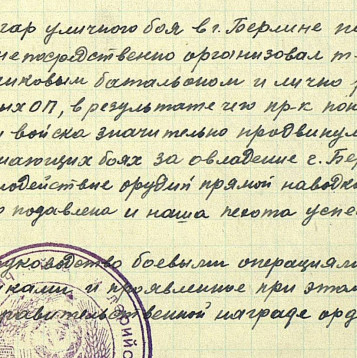 гар уличного боя в г. Берлине
непосредственно организовал
батальоном и лично
ых ОП, в результате чего пр-к
войска значительно продвину
ающих боях за овладение г. Бер
действие орудий прямой наводк
подавлена и наша пехота успе
уководство боевыми операциям
ками и проявленное при этом
равительственной награде орд